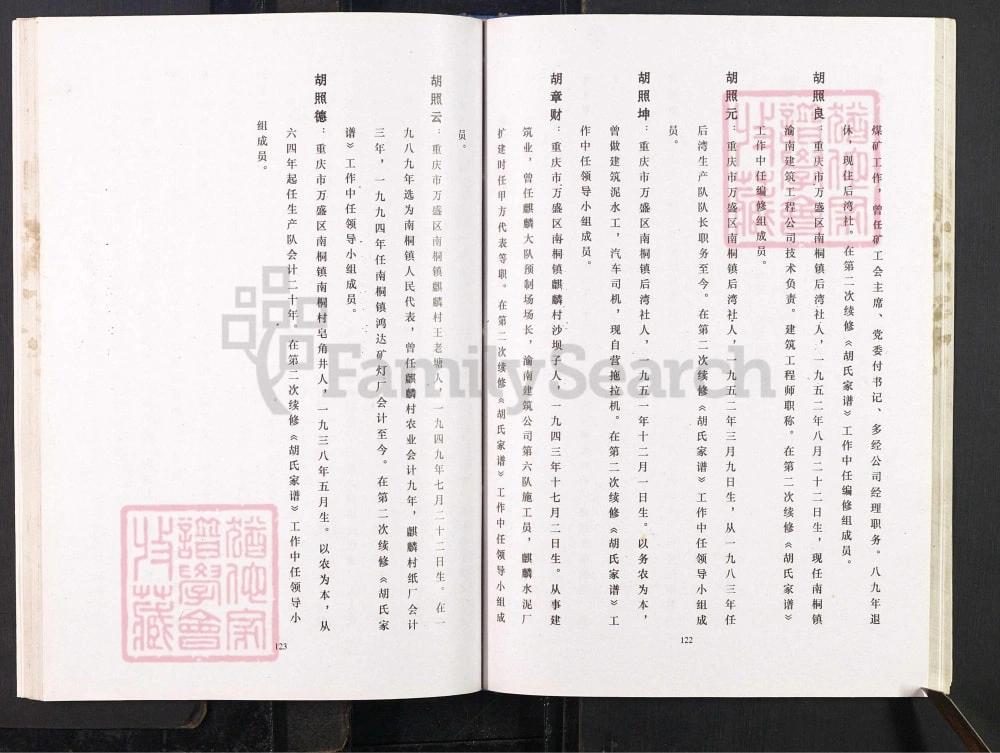 煤矿工作,曾任矿工会主席、党委付书记、多经公司经理职务。八九年退
休,现住后湾社。在第二次续修《胡氏家谱》工作中任编修组成员。
胡照良:重庆市万盛区南桐镇后湾社人,一九五二年八月二十二日生,现任南桐镇
渝南建筑工程公司技术负责。建筑工程师职称。在第二次续修《胡氏家谱》
工作中任编修组成员。
胡照元:重庆市万盛区南桐镇后湾社人,一九五二年三月九日生,从一九八三年任
后湾生产队队长职务至今。在第二次续修《胡氏家谱》工作中任领导小组成
员。
胡照坤:重庆市万盛区南桐镇后湾社人,一九五一年十二月一日生。以务农为本,
曾做建筑泥水工,汽车司机,现自营拖拉机。在第二次续修《胡氏家谱》工
作中任领导小组成员。
胡章财:重庆市万盛区南桐镇麒麟村沙坝子人,一九四三年十七月二日生。从事建
筑业,曾任麒麟大队预制场场长,渝南建筑公司第六队施工员,麒麟水泥厂
扩建时任甲方代表等职。在第二次续修《胡氏家谱》工作中任领导小组成
122
员。
胡照云:重庆市万盛区南桐镇麒麟村王老塘人,一九四九年七月二十二日生。在一
九八九年选为南桐镇人民代表,曾任麒麟村农业会计九年,麒麟村纸厂会计
三年,一九九四年任南桐镇鸿达矿灯厂会计至今。在第二次续修《胡氏家
谱》工作中任领导小组成员。
胡照德:重庆市万盛区南桐镇南桐村皂角井人,一九三八年五月生。以农为本,从
六四年起任生产队会计二十年,在第二次续修《胡氏家谱》工作中任领导小
组成员。
123
FamilySearch